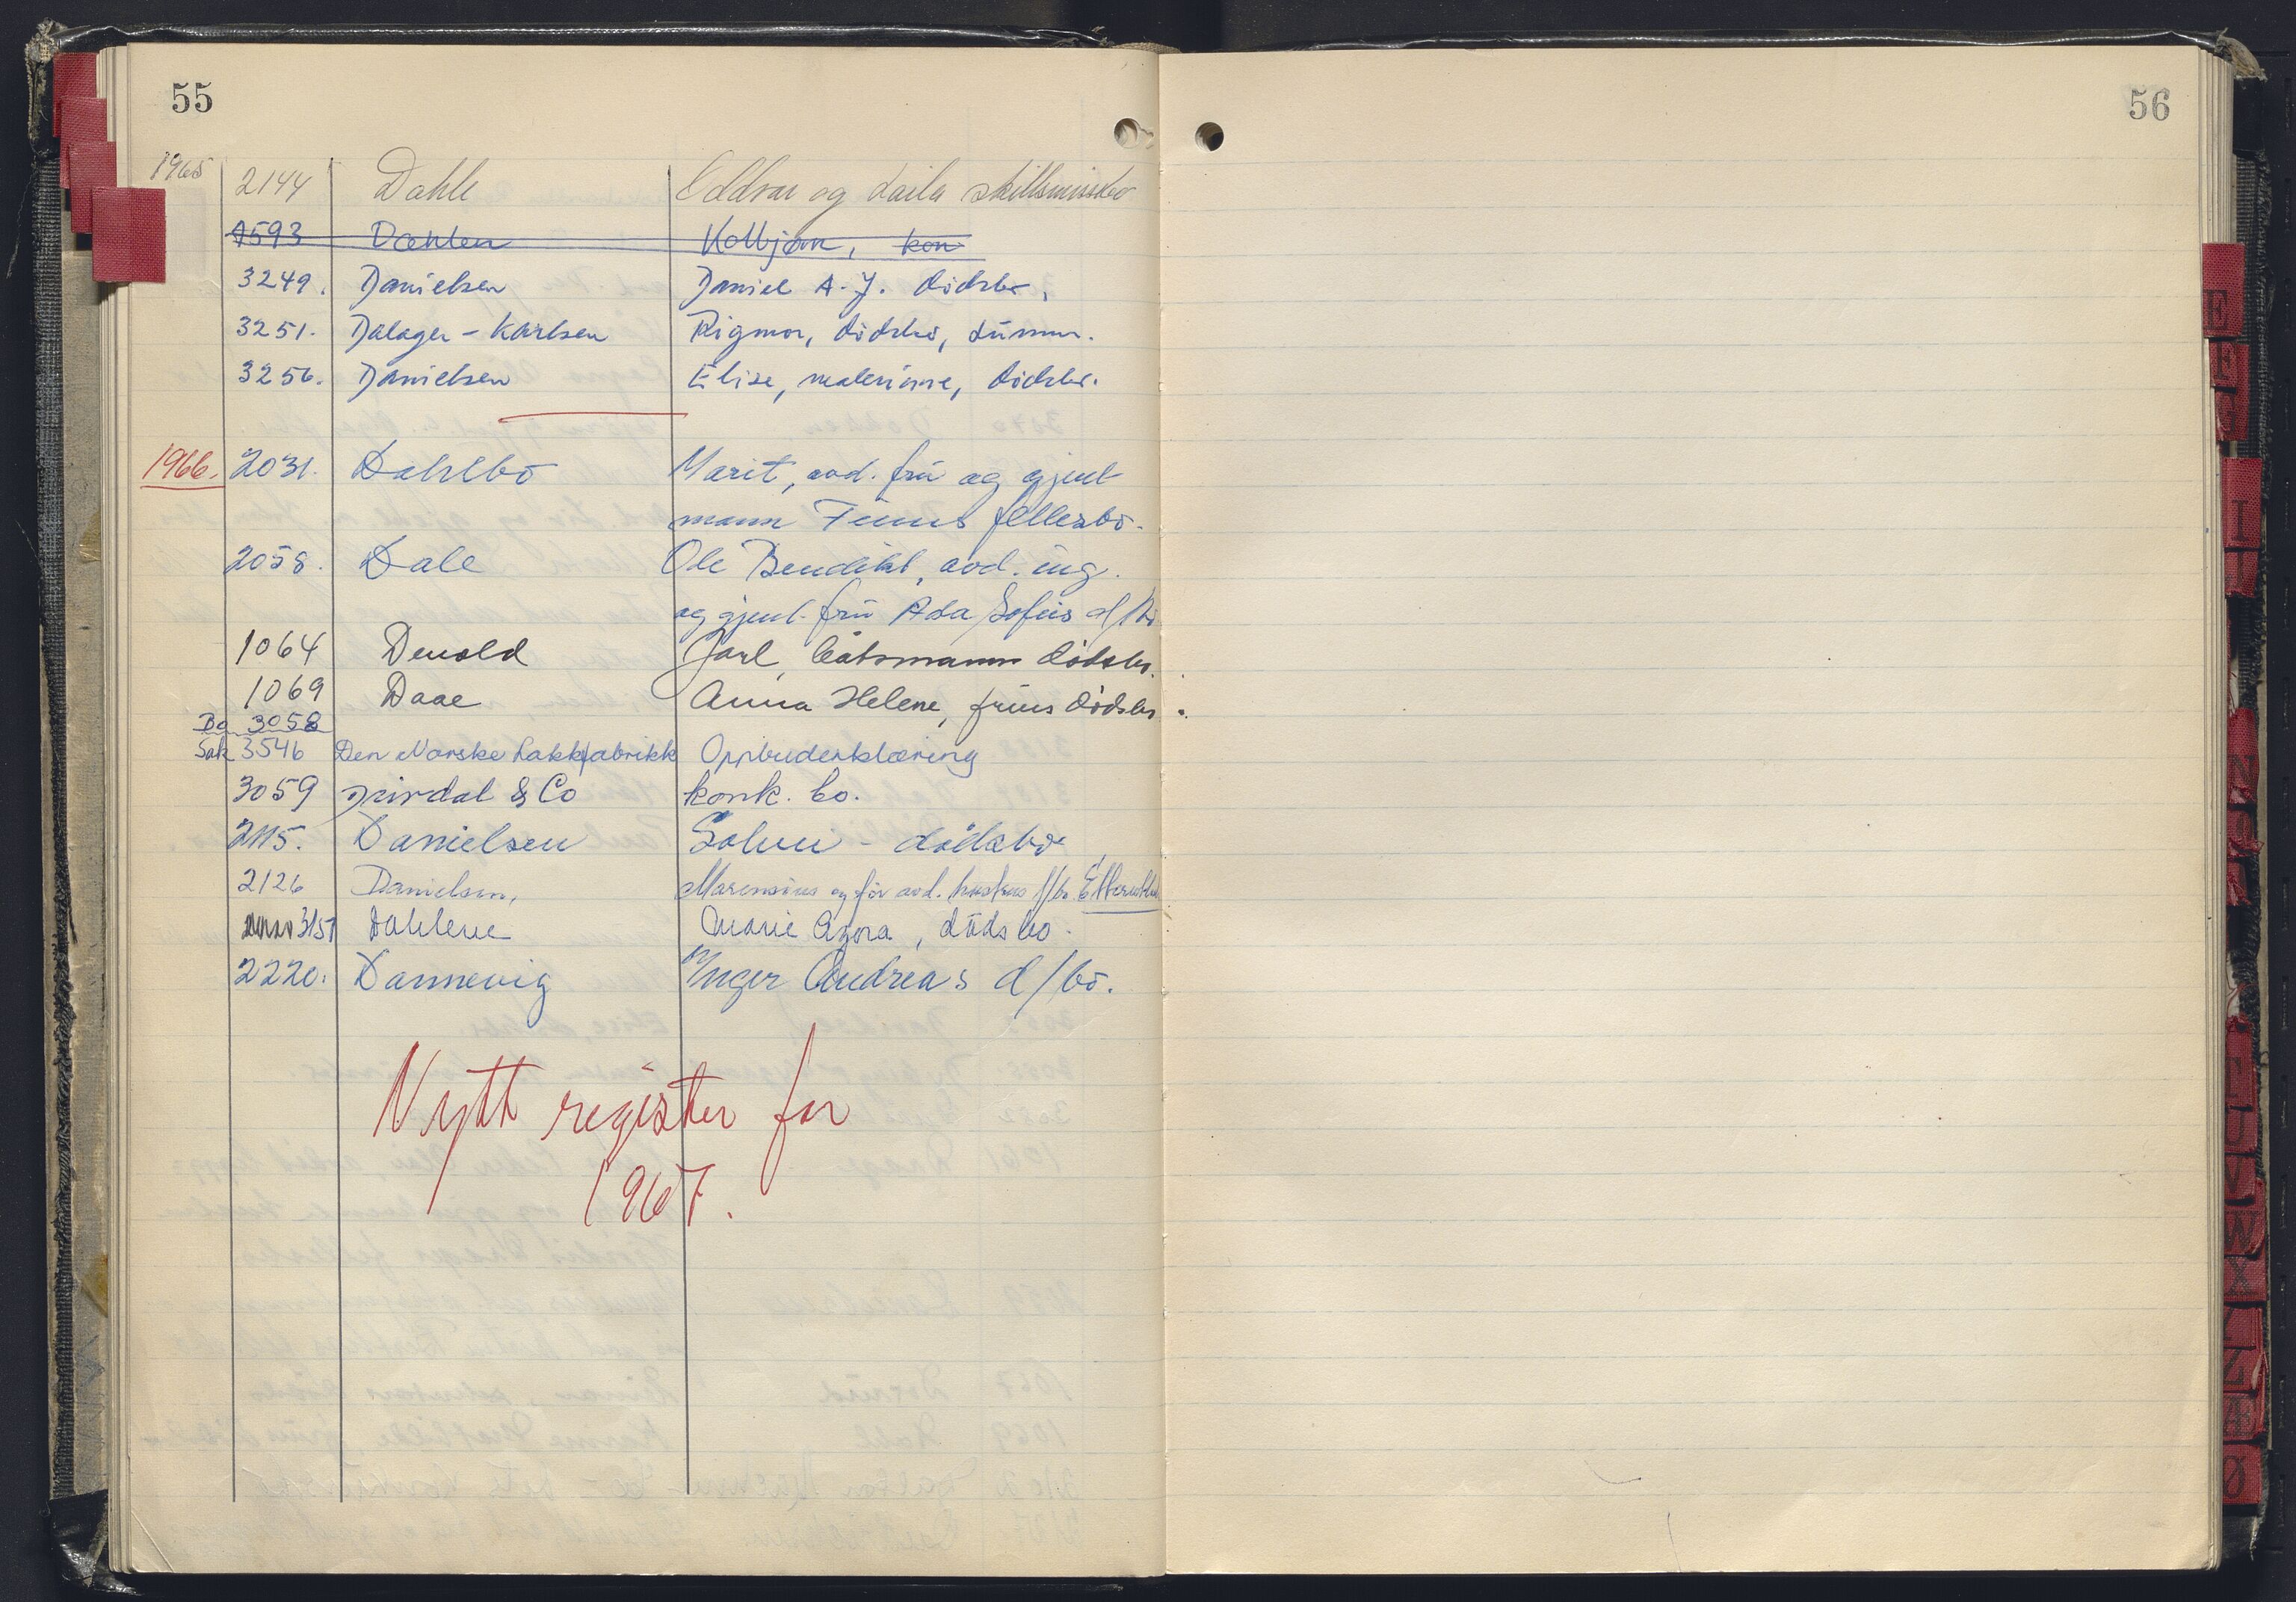 55
56
1965 2144 Dahle Oddvar og Laila skillsmissebo
1593 Dæhlen Kolbjørn, kon
3249. Danielsen Daniel A. J. dødsbo,
3251. Dalager - Karlsen Rigmor, dødsbo,
3256. Danielsen Elise, malerinne, dødsbo.
1966. 2031. Dahlbo Marit, avd. fru og gjenl
mann Finns fellesbo.
2058. Dale Ole Bendikt, avd. ing.
og gjenl. fru Ada Sofies d/bo
1064 Devold Jarl, båtsmann dødsbo.
1069 Daae Anna Helene, frues dødsbo.
Bo 3058
Sak 3546 Den Norske Lakkfabrikk Oppbuderklæring
3059 & Co konk. bo.
2115. Danielsen Solvei - dødsbo
2126 Danielsen, Marensius og før avd. hustrus f/bo
3151 Dahlene Marie Azora, dødsbo.
2220. Dannevig Inger Andreas d/bo.
Nytt register for
1967.
E
F
I
J
N
O
T
U
V
W
X
Z
Æ
Ø